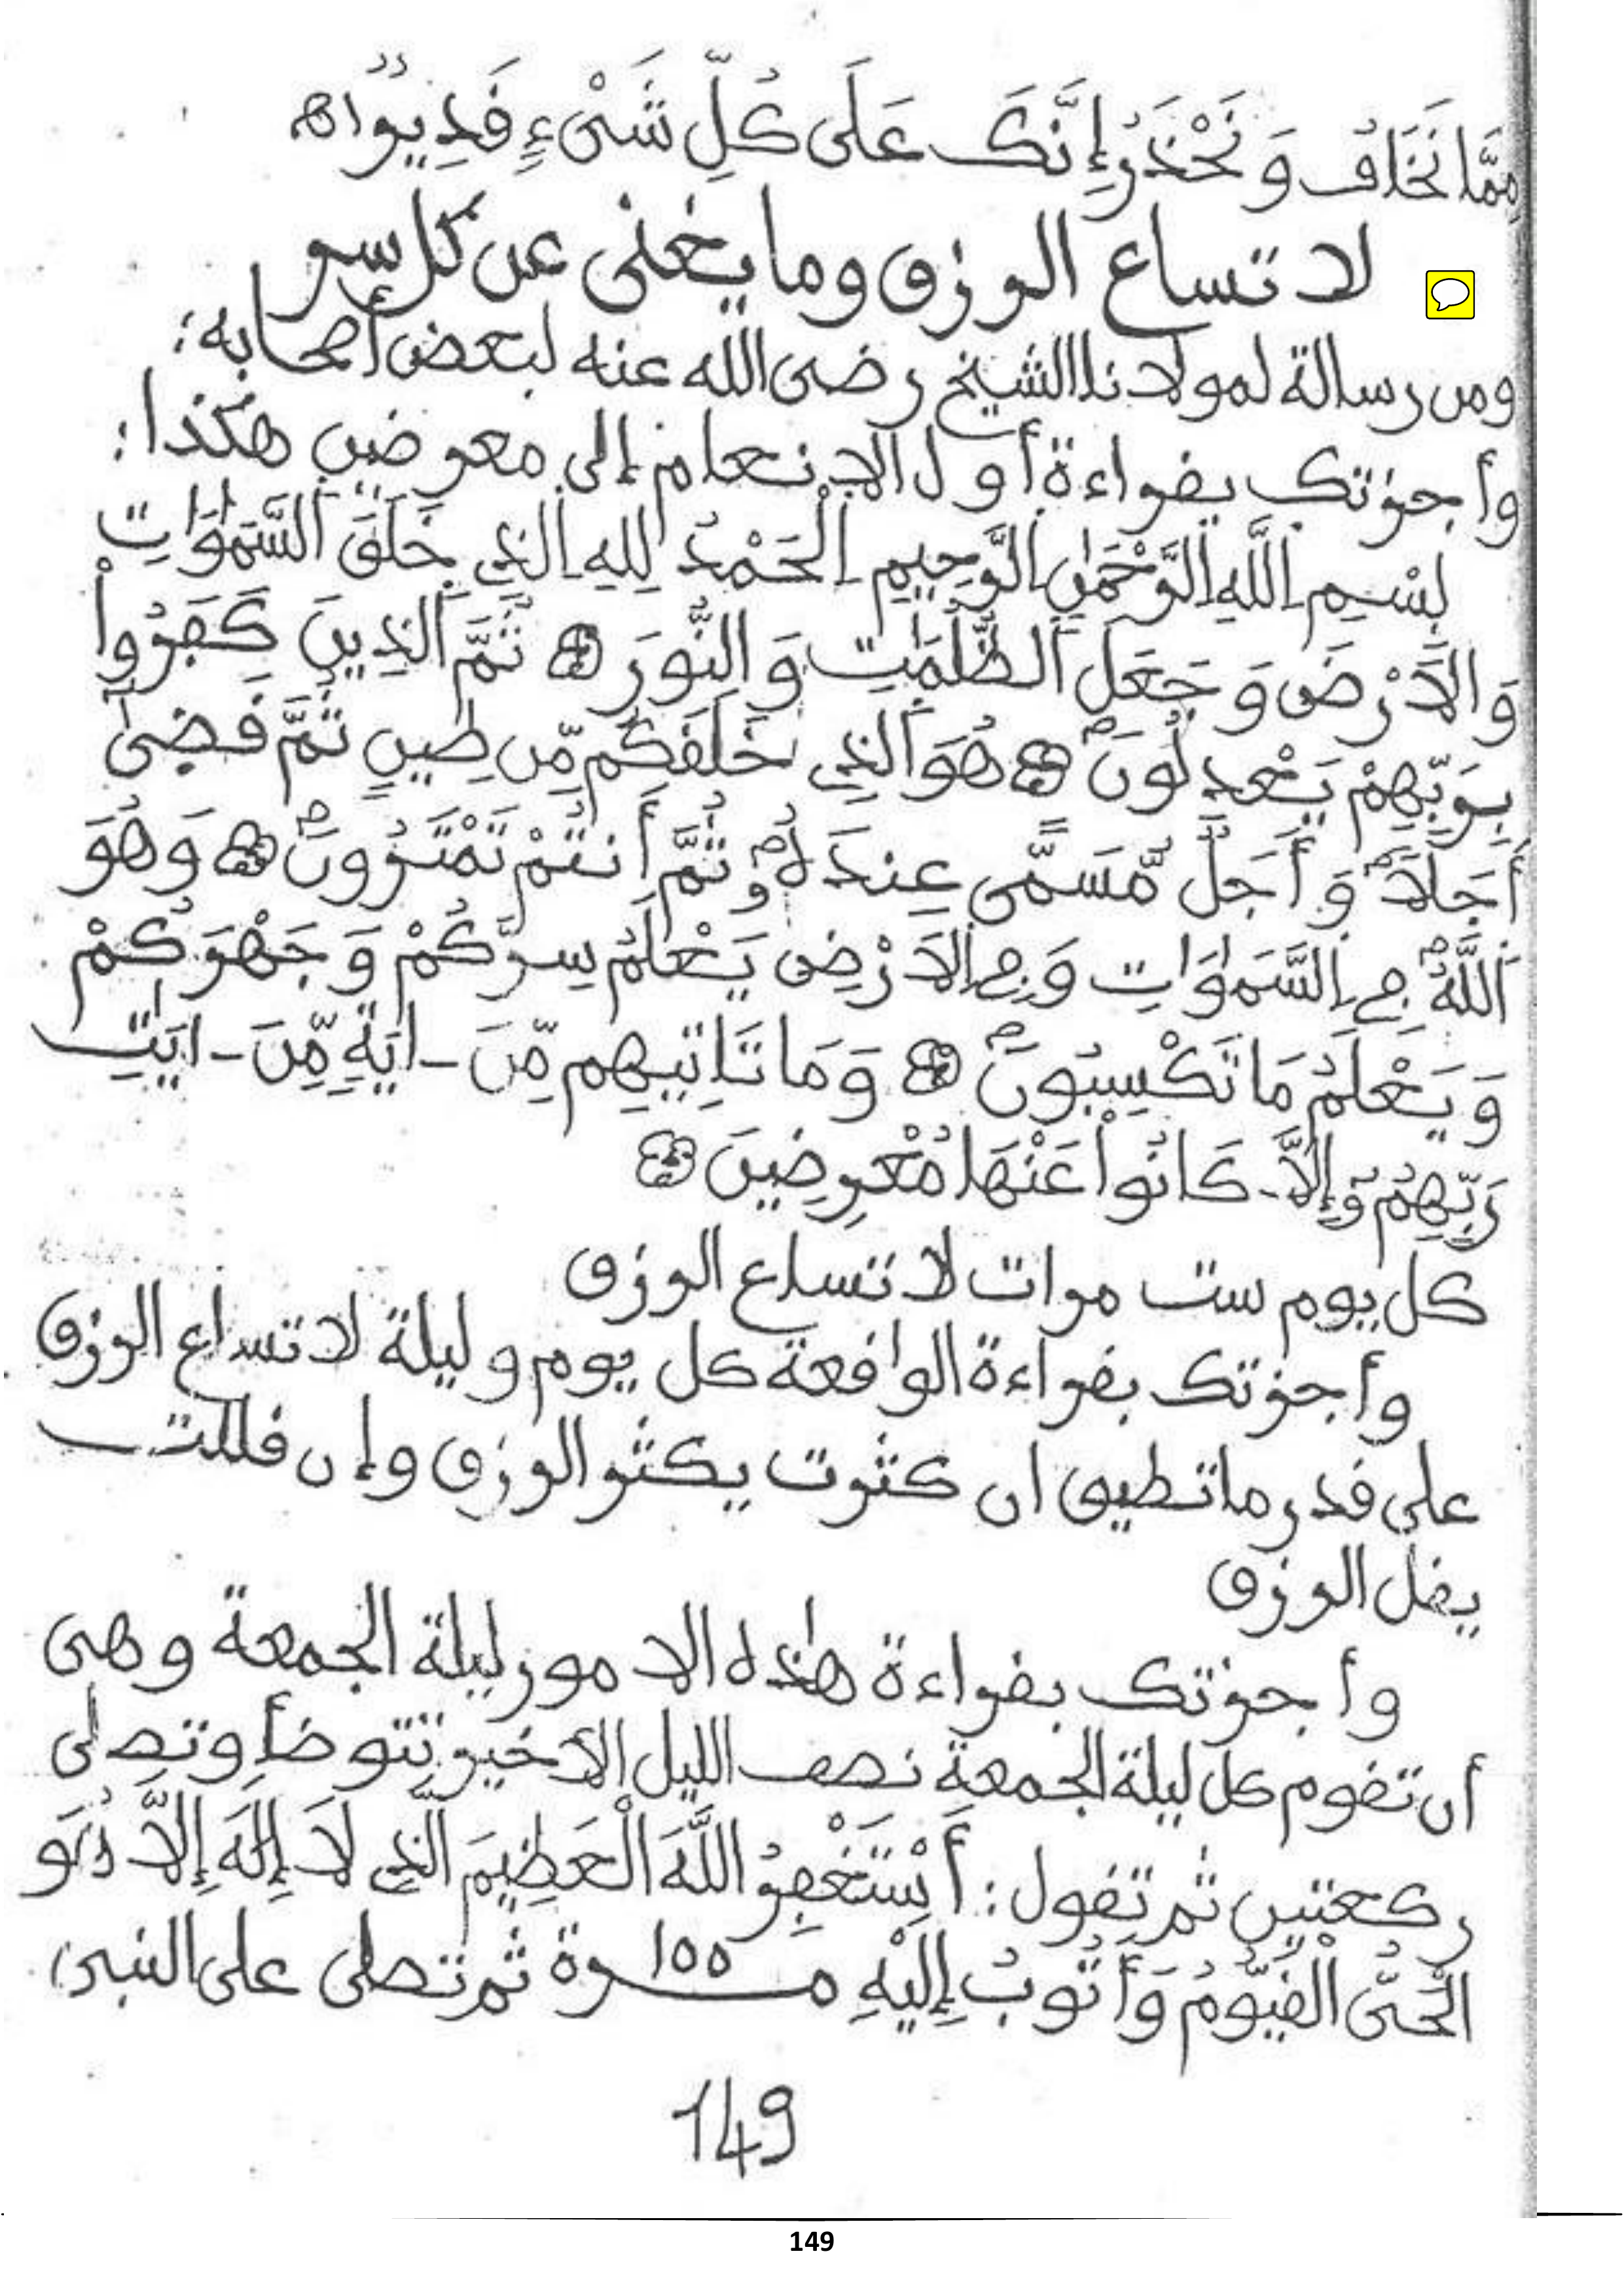 مِمَّا نَخَافُ وَنَحْذَرُ إِنَّكَ عَلَى كُلِّ شَيْءٍ قَدِيرٌ اهـ
لاتساع الرزق وما يغني عن كل سر
ومن رسالة لمولانا الشيخ رضي الله عنه لبعض أصحابه:
وأجزتك بقراءة أول الانعام إلى معرضين هكذا:
بِسْمِ اللَّهِ الرَّحْمَٰنِ الرَّحِيمِ الْحَمْدُ لِلهِ الذِي خَلَقَ السَّمَٰوَٰتِ
وَالَارْضَ وَجَعَلَ الظُّلُمَٰتِ وَالنُّورَ ۞ ثُمَّ الذِينَ كَفَرُواْ
بِرَبِّهِمْ يَعْدِلُونَ ۞ هُوَ الذِي خَلَقَكُم مِّن طِينٍ ثُمَّ قَضَىٰٓ
أَجَلًا وَأَجَلٌ مُّسَمًّى عِندَهُۥ ثُمَّ أَنتُمْ تَمْتَرُونَ ۞ وَهُوَ
اللَّهُ فِي السَّمَٰوَٰتِ وَفِي الَارْضِ يَعْلَمُ سِرَّكُمْ وَجَهْرَكُمْ
وَيَعْلَمُ مَا تَكْسِبُونَ ۞ وَمَا تَاتِيهِم مِّنَ ـ ايَةٍ مِّنَ ـ ايَٰتِ
رَبِّهِمُۥٓ إِلَّا كَانُواْ عَنْهَا مُعْرِضِينَ ۞
كل يوم ست مرات لاتساع الرزق
وأجزتك بقراءة الواقعة كل يوم وليلة لاتساع الرزق
على قدر ما تطيق ان كثرت يكثر الرزق وإن قللت
يقل الرزق
وأجزتك بقراءة هٰذه الامور ليلة الجمعة وهي
أن تقوم كل ليلة الجمعة نصف الليل الأخير تتوضأ وتصلي
ركعتين ثم تقول: أَسْتَغْفِرُ اللَّهَ الْعَظِيمَ الَّذِي لَا إِلَٰهَ إِلَّا هُوَ
الْحَيُّ الْقَيُّومُ وَأَتُوبُ إِلَيْهِ 100 مرة ثم تصلي على النبي
149
149